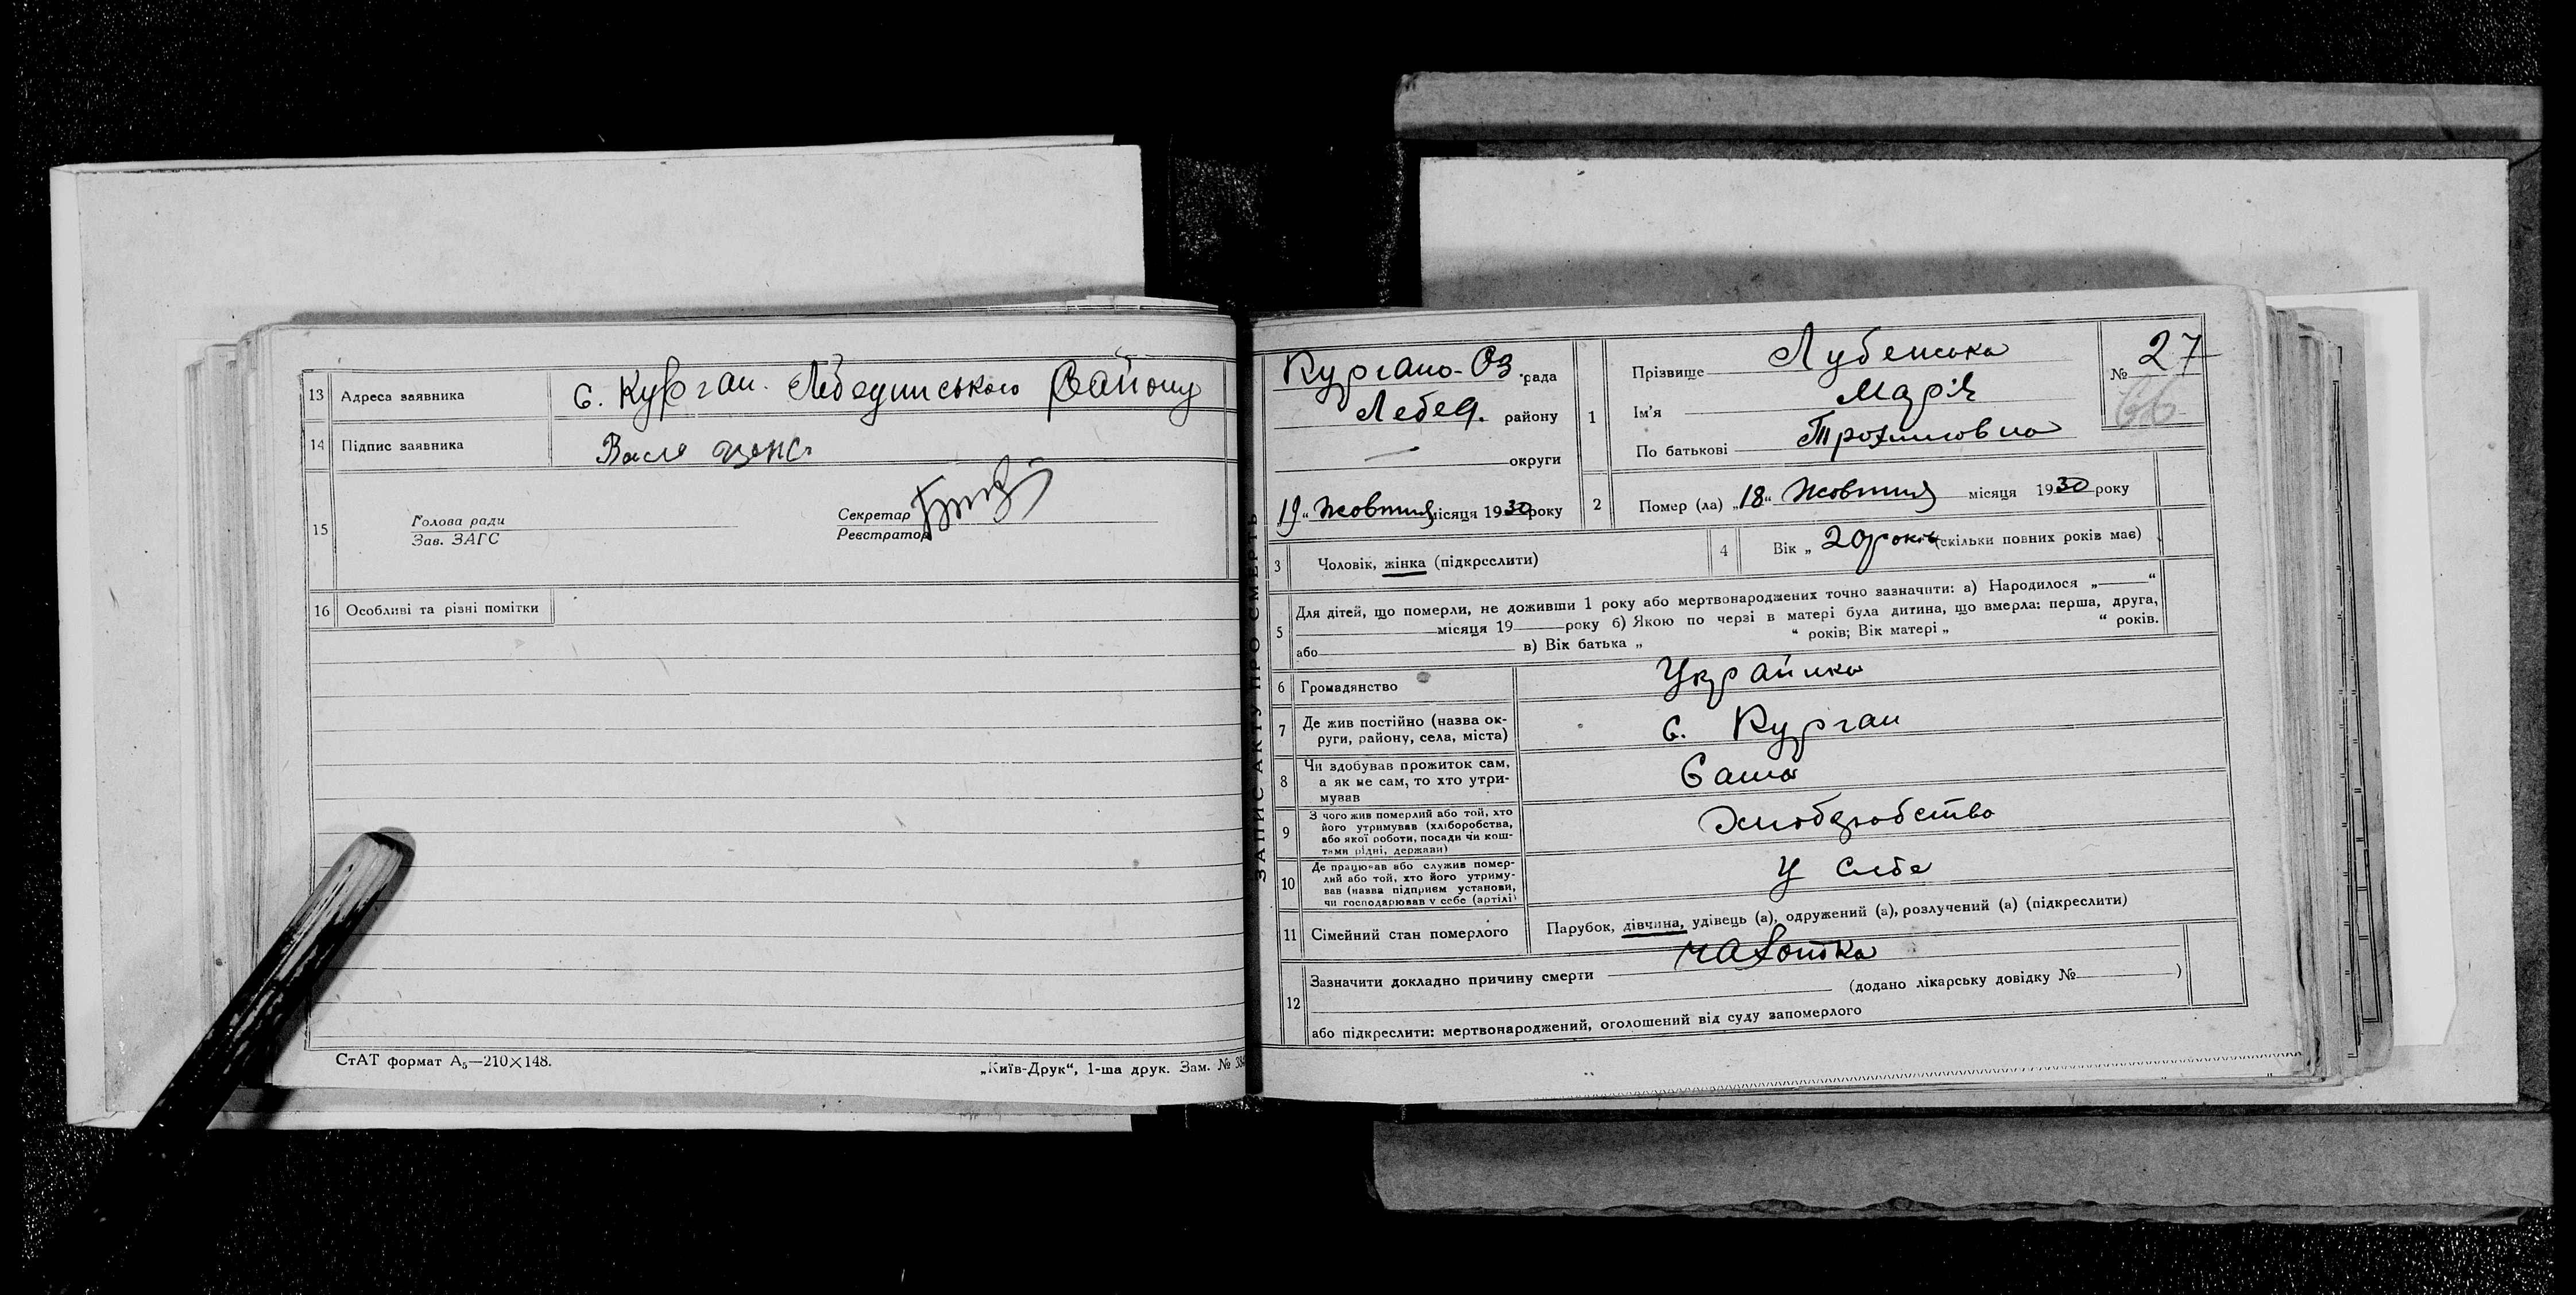 13 Адреса заявника с. Курган. Лебединського Району
14 Підпис заявника
15 Голова ради
Зав. ЗАГС
Секретар
Реєстратор
16 Особливі та різні помітки
СтАТ формат А₅—210×148.
„Київ-Друк“, 1-ша друк. Зам. №
ЗАПИС АКТУ ПРО СМЕРТЬ
Кургано-Оз. рада
Лебед. району
— округи
19 „ Жовтня місяця 1930 року
1 Прізвище Лубенська
Ім'я Марія
По батькові Трохимовна
№ 27
66
2 Помер (ла) „18“ Жовтня місяця 1930 року
3 Чоловік, жінка (підкреслити)
4 Вік „ 20 років (скільки повних років має)
5 Для дітей, що померли, не доживши 1 року або мертвонароджених точно зазначити: а) Народилося „——“
місяця 19——року б) Якою по черзі в матері була дитина, що вмерла: перша, друга,
або—— в) Вік батька „ “ років; Вік матері „ “ років.
6 Громадянство Українка
7 Де жив постійно (назва ок-
руги, району, села, міста) с. Курган
8 Чи здобував прожиток сам,
а як не сам, то хто утри-
мував Сама
9 З чого жив померлий або той, хто
його утримував (хліборобства,
або якої роботи, посади чи кош-
тами рідні, держави) Хлиборобство
10 Де працював або служив помер-
лий або той, хто його утриму-
вав (назва підприєм установи,
чи господарював у себе (артілі) У себе
11 Сімейний стан померлого Парубок, дівчина, удівець (а), одружений (а), розлучений (а) (підкреслити)
12 Зазначити докладно причину смерти чахотка
(додано лікарську довідку №——)
або підкреслити: мертвонароджений, оголошений від суду запомерлого